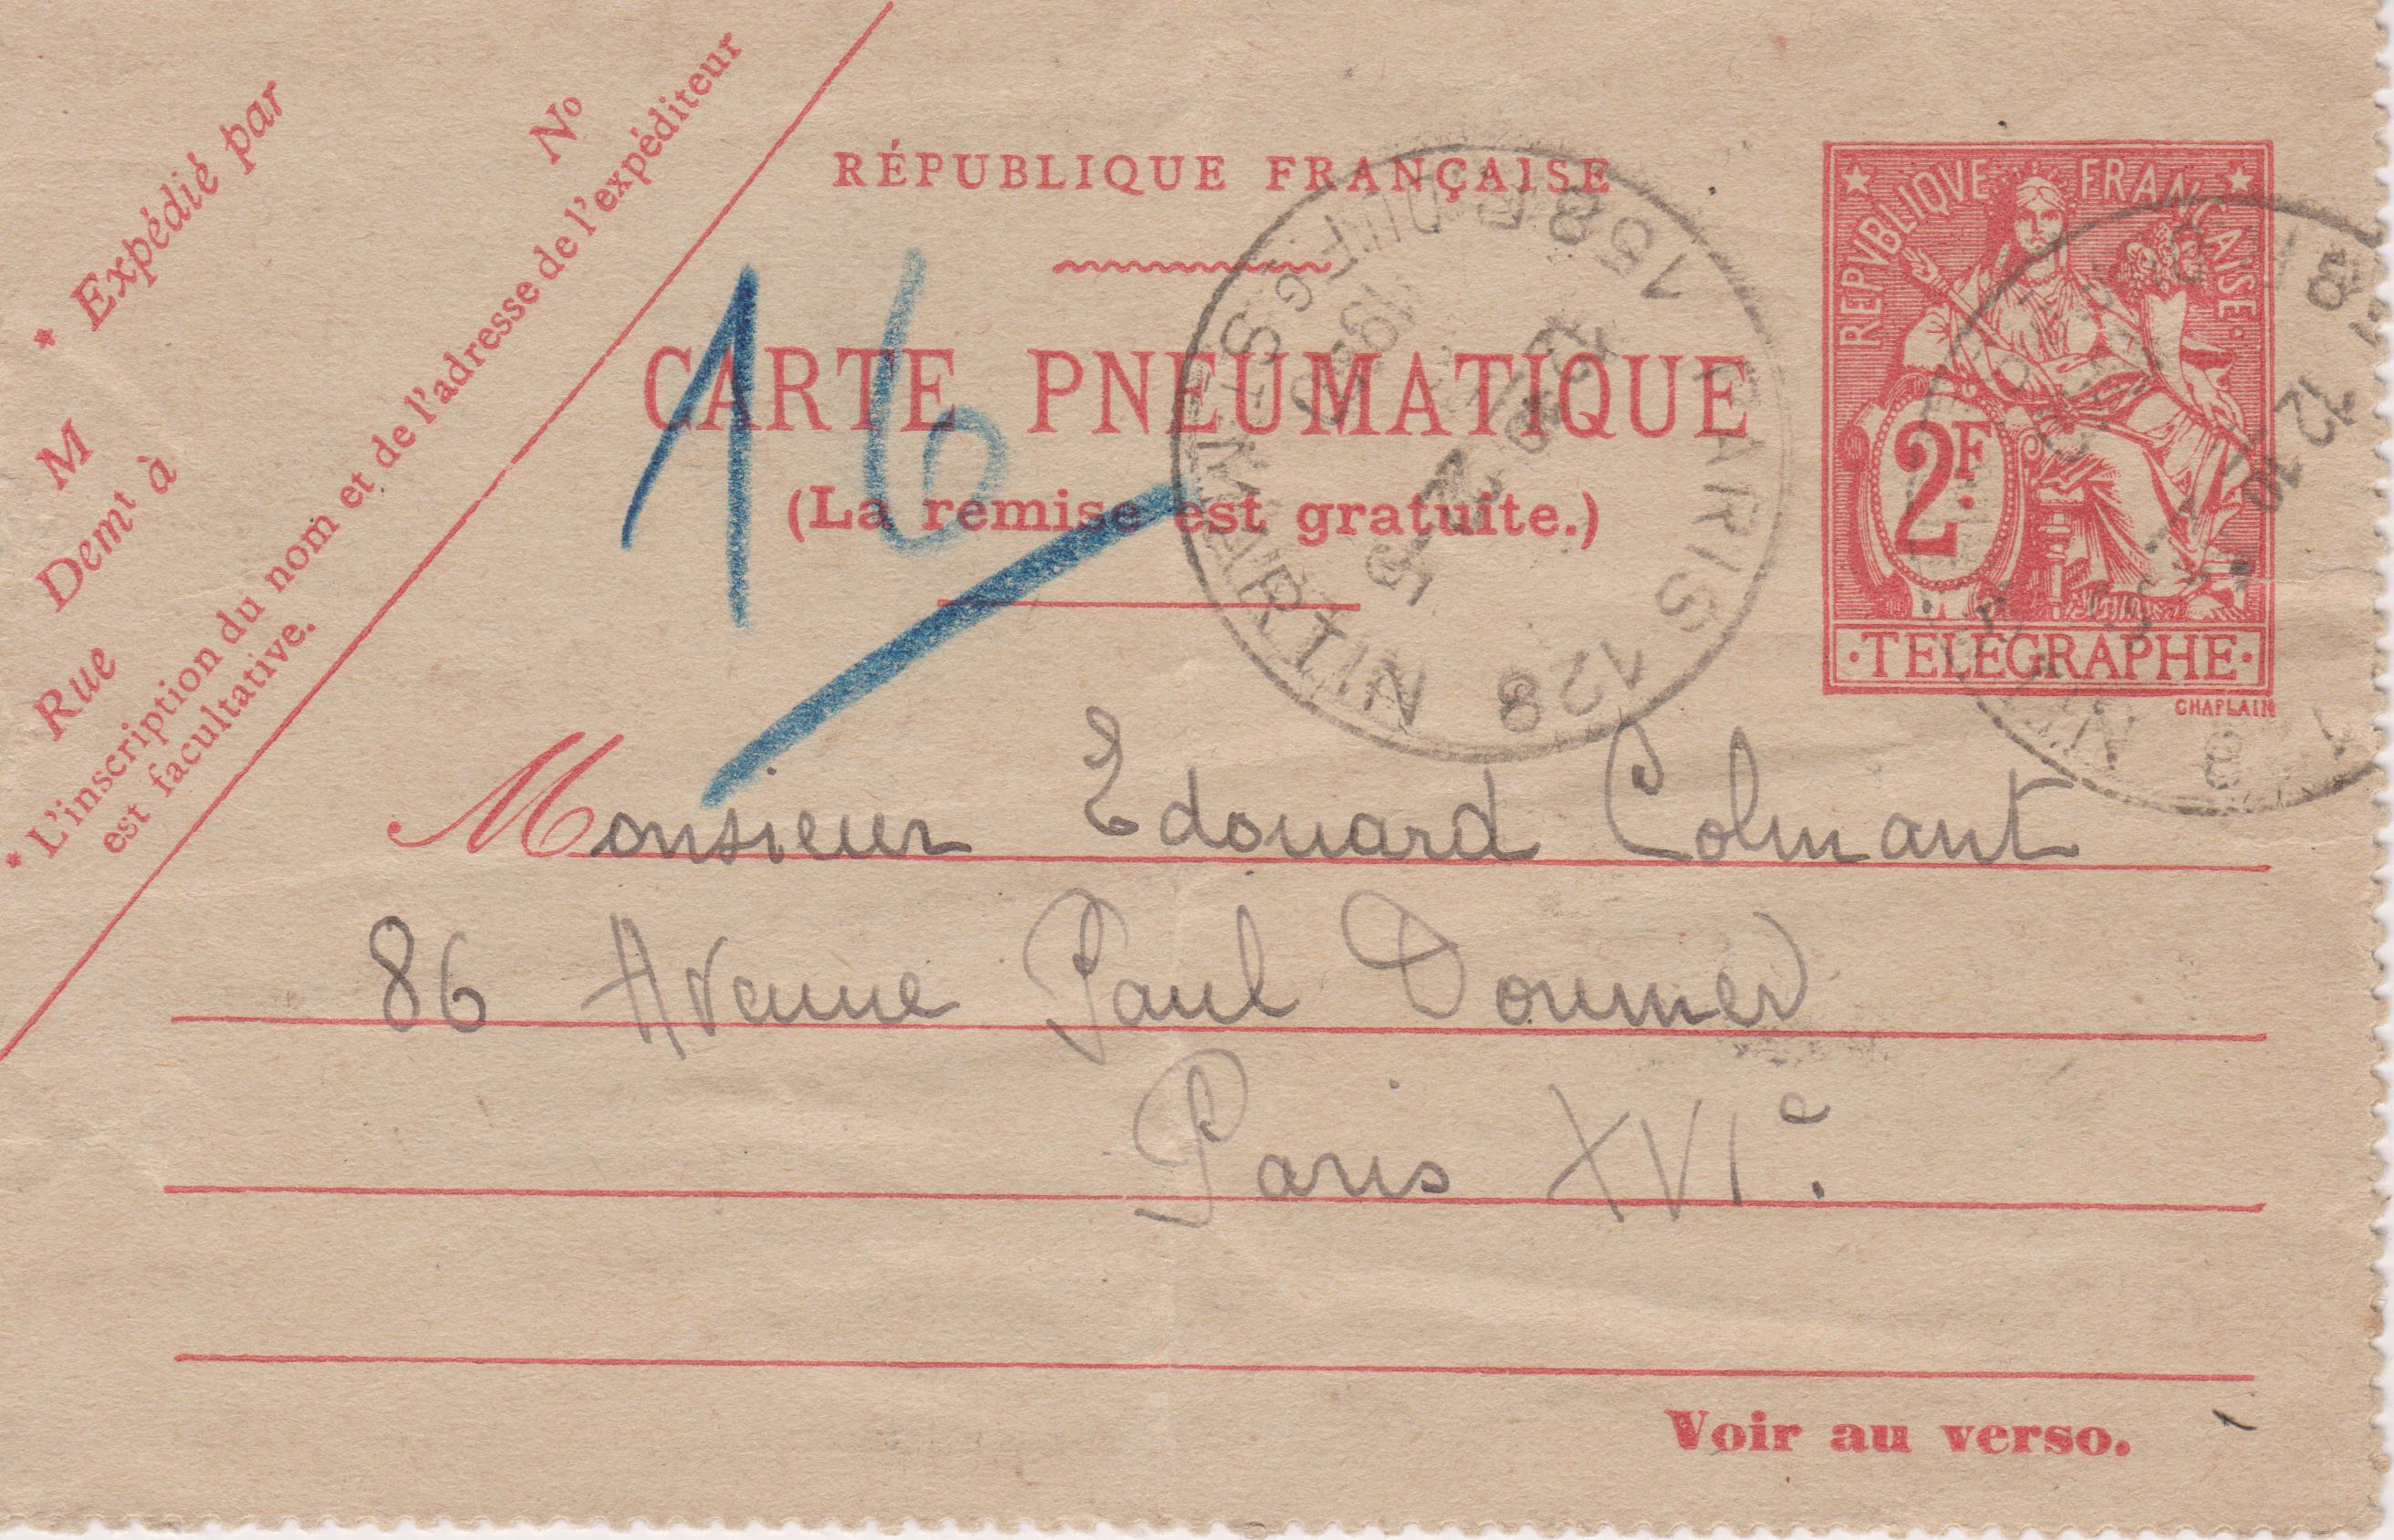 * Expédié par
M
Demt à
Rue
No
* L'inscription du nom et de l'adresse de l'expéditeur
est facultative.
RÉPUBLIQUE FRANÇAISE
CARTE PNEUMATIQUE
(La remise est gratuite.)
16
PARIS 128
REPVBLIQVE FRANÇAISE
2F.
·TELEGRAPHE·
CHAPLAIN
Monsieur Edouard Colmant
86 Avenue Paul Doumer
Paris XVIe.
Voir au verso.